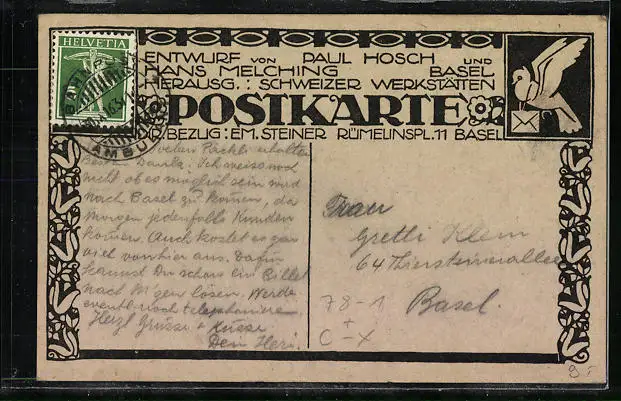 HELVETIA
ENTWURF VON PAUL HOSCH UND
HANS MELCHING BASEL
HERAUSG.: SCHWEIZER WERKSTÄTTEN
POSTKARTE
BEZUG: EM. STEINER RÜMELINSPL. 11 BASEL
Päckli erhalten
Besten Dank. Ich weiss noch
nicht ob es möglich sein wird
nach Basel zu kommen, da
Morgen jedenfalls Kunden
kommen. Auch kostet es gar
viel von hier aus. Dafür
kannst Du schon ein Billet
nach M'gen lösen. Werde
eventl. noch telephonieren
Herzl Grüsse + Küsse
Dein Heri.
Frau
Gretti Klein
64 Thiersteinerallee
Basel.
78-1
+
C-X
9.-